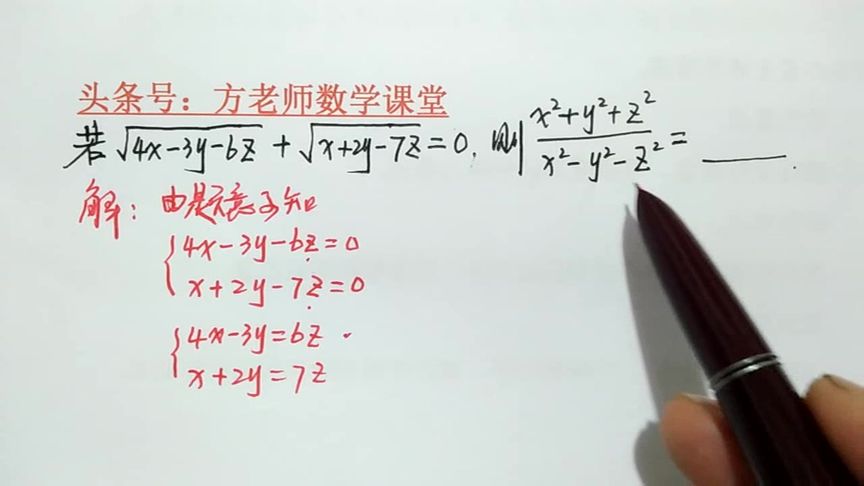 头条号：方老师数学课堂
若 √(4x-3y-6z) + √(x+2y-7z) = 0, 则 (x²+y²+z²)/(x²-y²-z²) = ____.
解：由题意可知
{4x-3y-6z=0
x+2y-7z=0
{4x-3y=6z
x+2y=7z